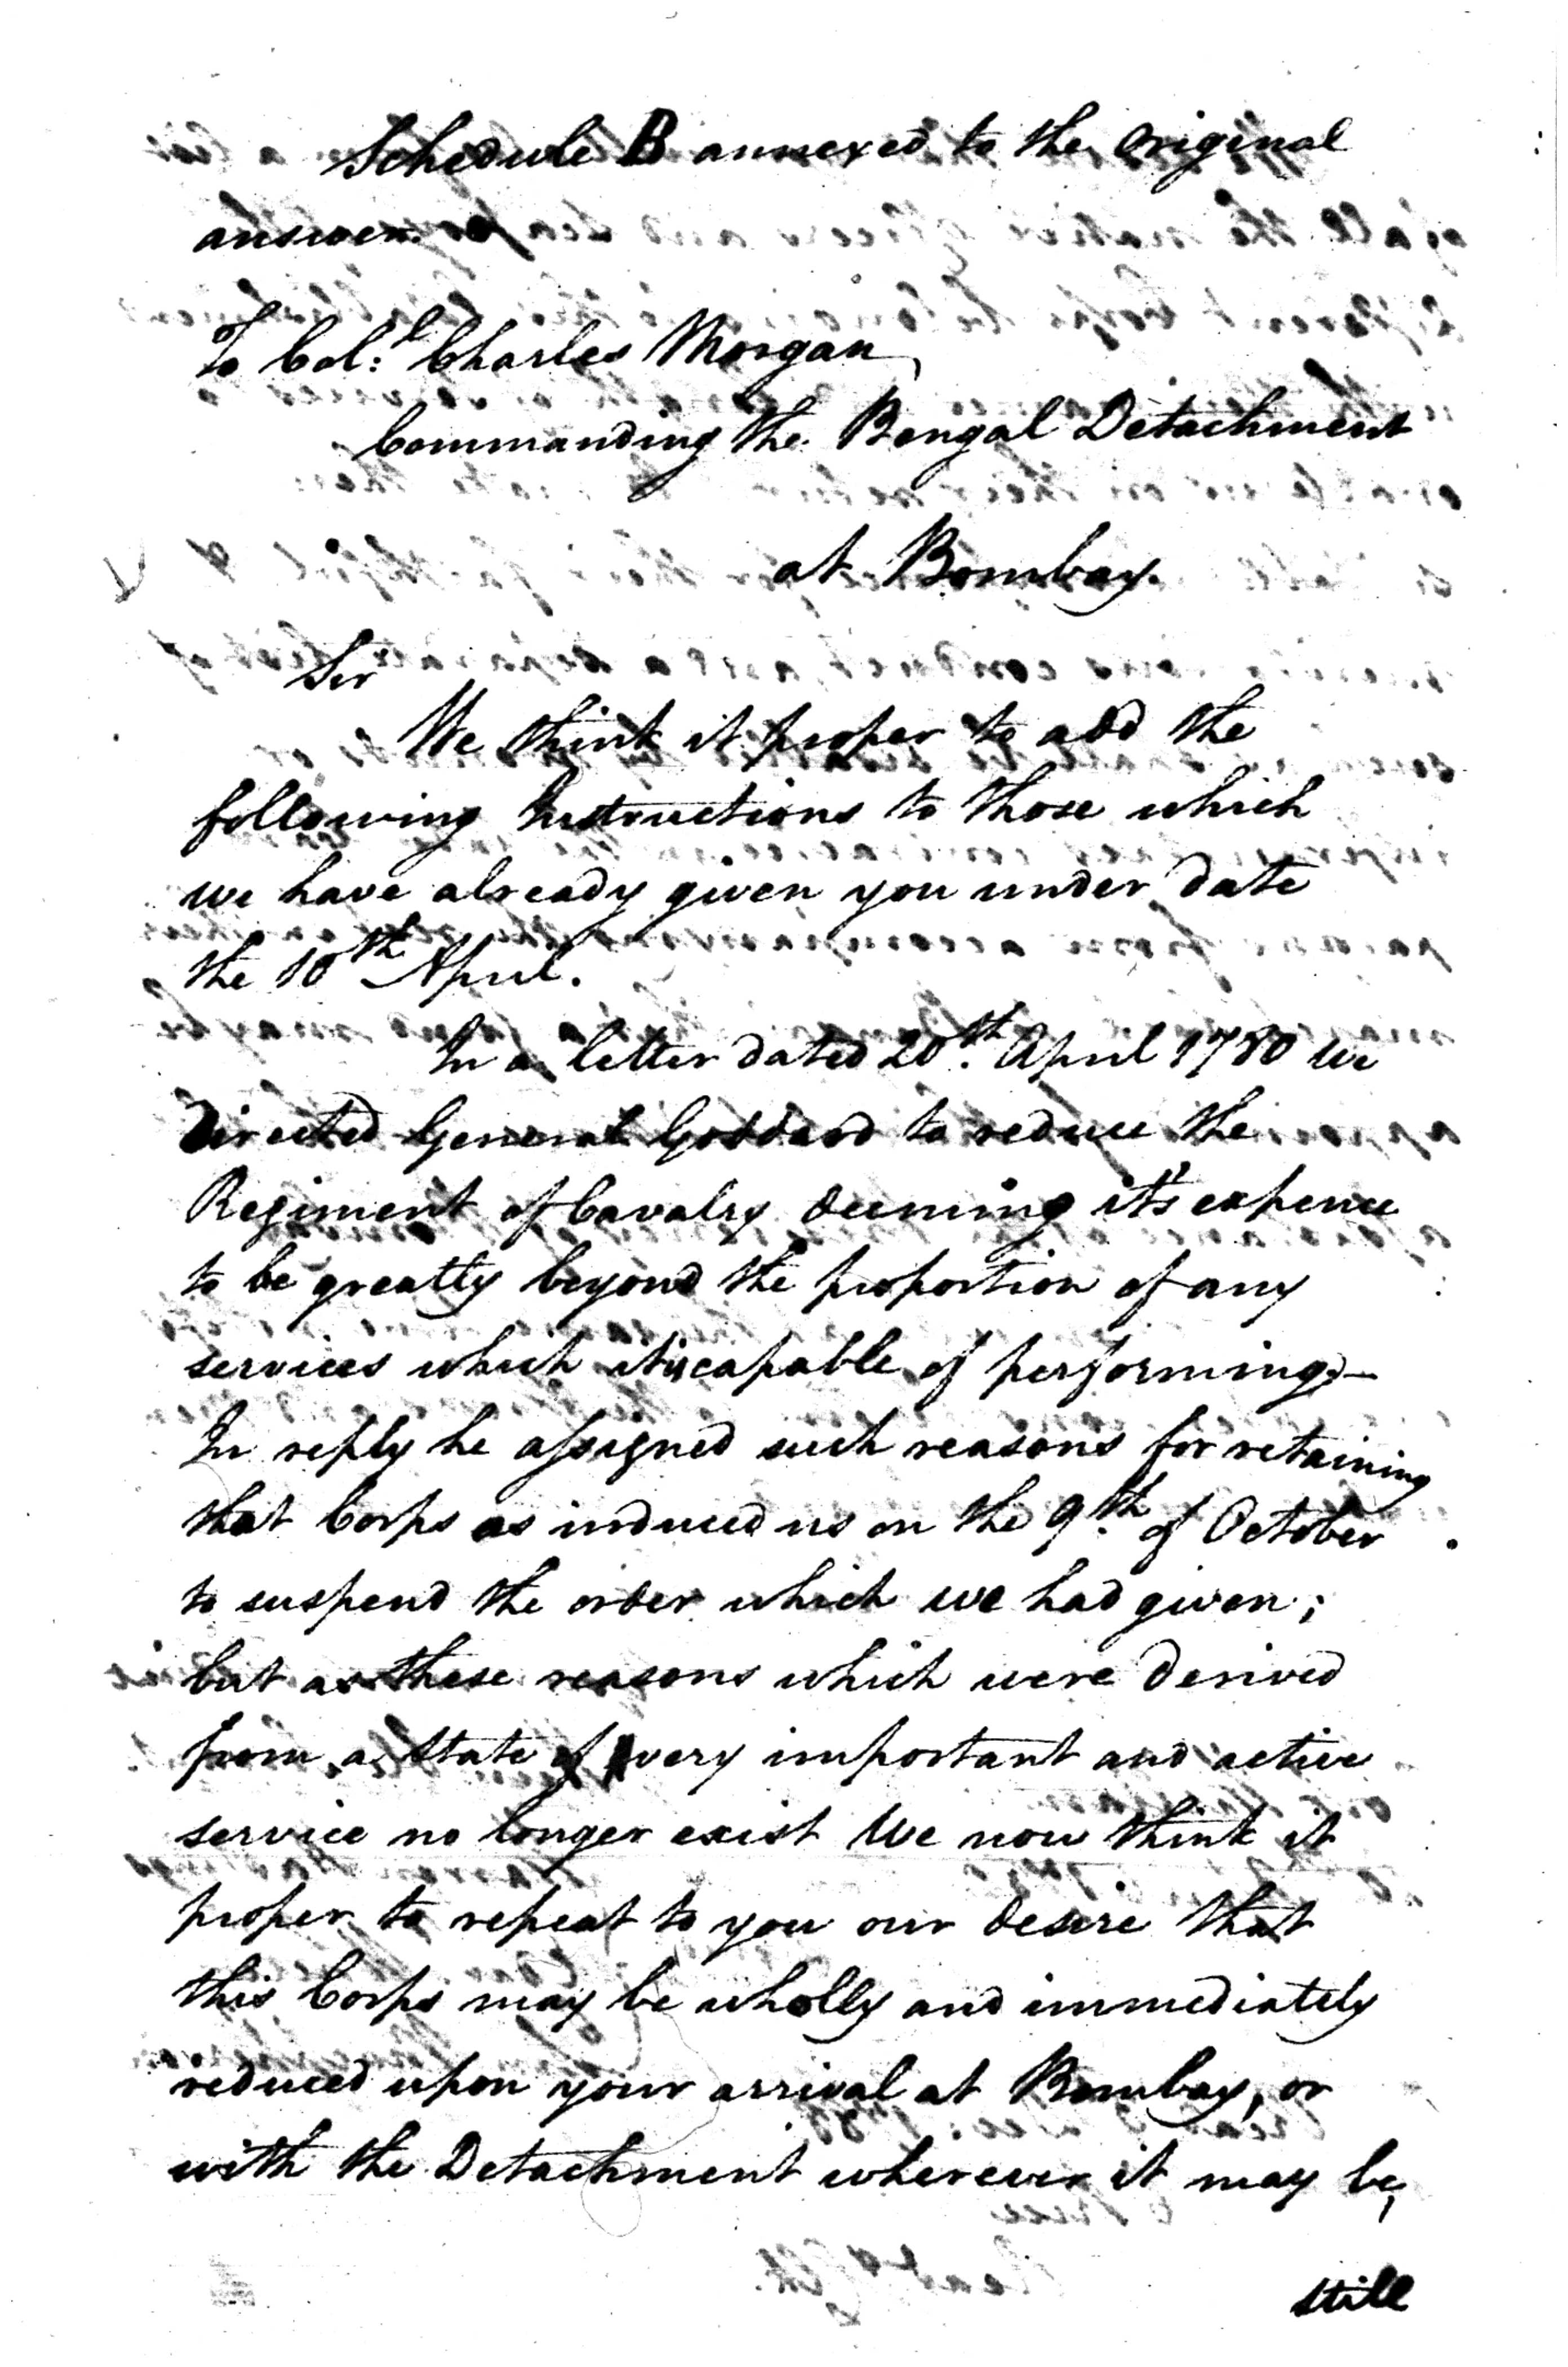 Schedule B annexed to the Original
answer.
To Col:l Charles Morgan,
Commanding the Bengal Detachment
at Bombay.
Sir
We think it proper to add the
following Instructions to those which
we have already given you under date
the 10th April.
In a letter dated 20th. April 1780 We
Directed General Goddard to reduce the
Regiment of Cavalry deeming it's expence
to be greatly beyond the proportion of any
services which it is capable of performing;—
In reply he assigned such reasons for retaining
that Corps as induced us on the 9th. of October
to suspend the order which we had given;
but as these reasons which were derived
from a state of very important and active
service no longer exist We now think it
proper to repeat to you our desire that
this Corps may be wholly and immediately
reduced upon your arrival at Bombay, or
with the Detachment wherever it may be,
still